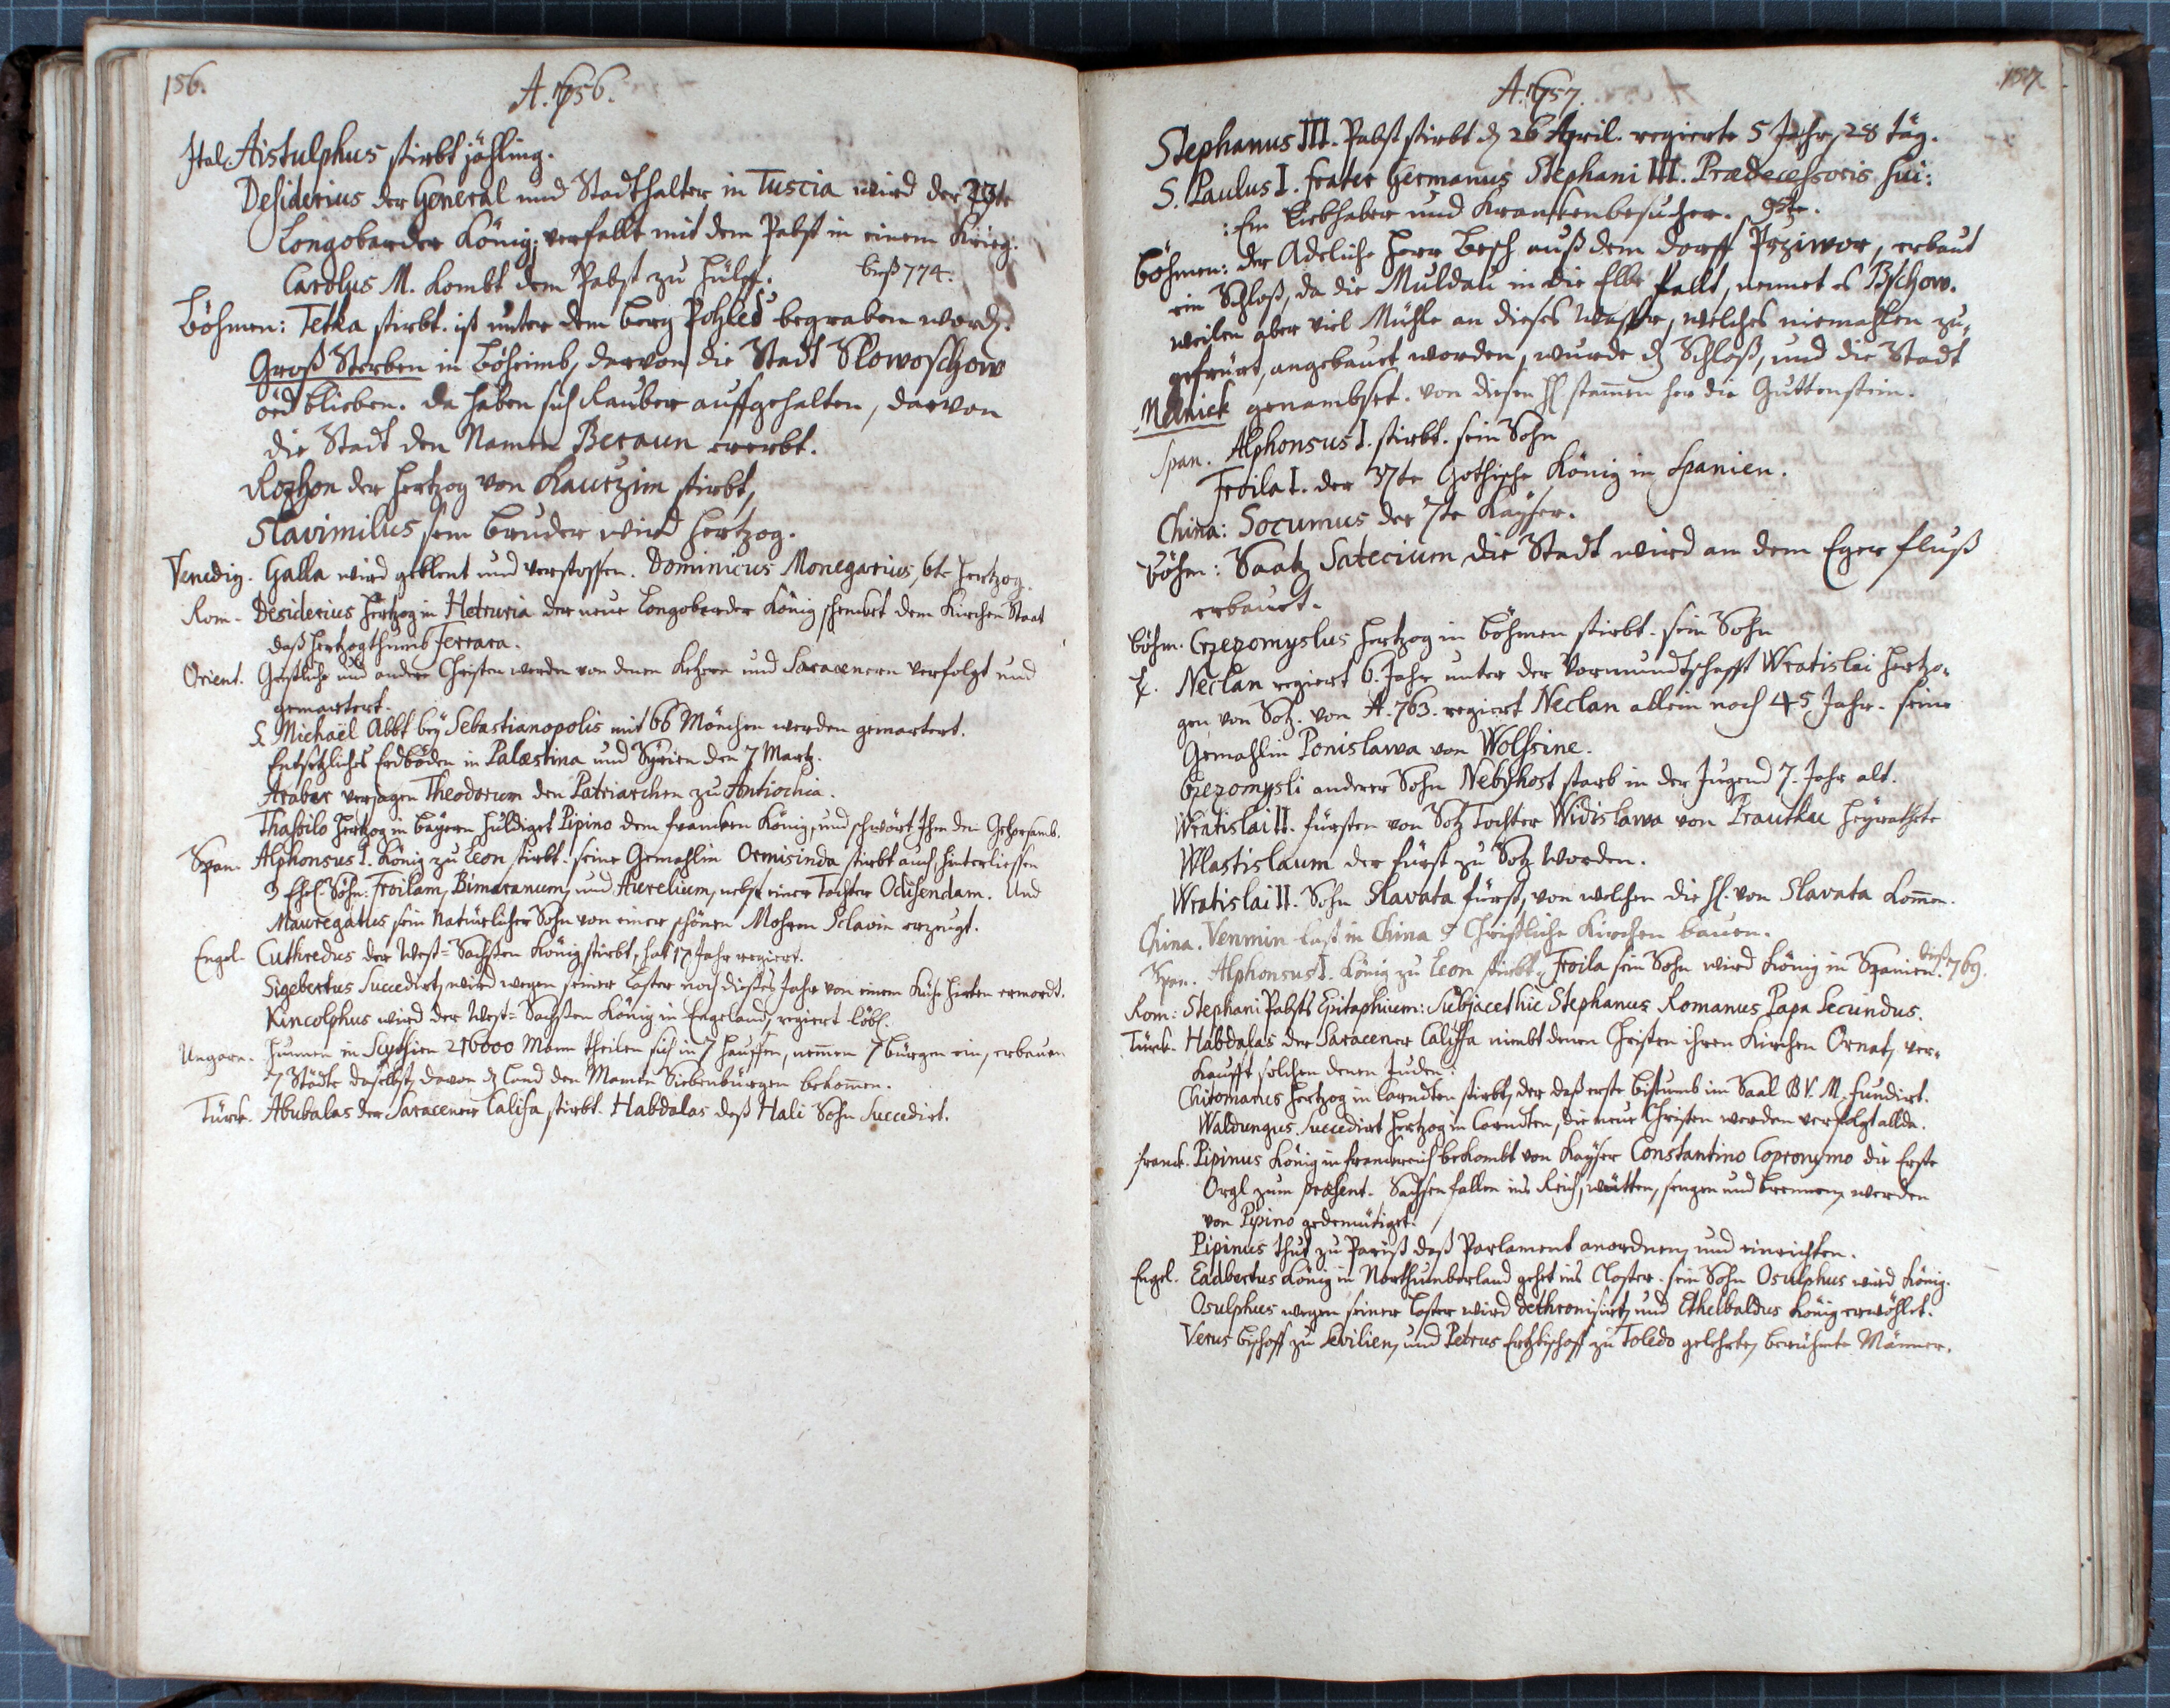 156.
A. 756.
Ital. Aistulphus stirbt jähling.
Desiderius der General und Stadthalter in Tuscia wird der 23te
Longobarder König, verfallt mit dem Pabst in einem Krieg.
Carolus M. kombt dem Pabst zu Hülff. bieß 774.
Böhmen: Tetka stirbt. ist unter dem berg Pohled begraben word.
Groß Sterben in Böheimb, darvon die Stadt Slowoschow
öed blieben. da haben sich Rauber auffgehalten, darvon
die Stadt den Namen Beraun ererbt.
Rozhon der Hertzog von Kaurzim stirbt,
Slavimilus sein bruder wird Hertzog.
Venedig. Galla wird geblent und verstossen. Dominicus Monegarius, 6te Hertzog.
Rom. Desiderius Hertzog in Hetruria der neue Longobarder König schencket dem Kirchen Staat
daß Hertzogthumb Ferrara.
Orient. Geistliche und andere Christen werden von denen Ketzern und Saracenern verfolgt und
gemartert.
S. Michaël Abbt bey Sebastianopolis mit 66 Mönchen werden gemartert.
Entsetzliches Erdböden in Palæstina und Syrien den 7 Martz.
Araber verjagen Theodorum den Patriarchen zu Antiochia.
Thassilo Hertzog in Bayern huldiget Pipino dem francken König, und schwört Ihm den Gehorsamb.
Span. Alphonsus I. König zu Leon stirbt. seine Gemahlin Ormisinda stirbt auch, hinterliessen
3 Ehel. Söhn: Froilam, Bimaranum, und Aurelium, nebst einer Tochter Odisendam. Und
Mauregatus sein Natürlicher Sohn von einer schönen Mohren Sclavin erzeugt.
Engel. Cuthredus der West-Sachsen König stirbt, hat 17 Jahr regiert.
Sigebertus Succedirt, wird wegen seiner Laster noch dieses Jahr von einem Kühe Hirten ermordt.
Kincolphus wird der West-Sachsen König in Engeland, regiert löbl.
Ungarn. Hunnen in Scythien 216000 Mann theilen sich in 7 Hauffen, nemmen 7bürgen ein, erbauen
7 Städte daselbst, davon dz Land den Namen Siebenbürgen bekommen.
Türck. Abubalas der Saracener Califa stirbt. Habdalas deß Hali Sohn Succedirt.
157
A. 757.
Stephanus III. Pabst stirbt d. 26 April. regierte 5 Jahr, 28 täg.
S. Paulus I. frater Germanus Stephani III. Prædecessoris sui:
: Ein Liebhaber und Krankenbesucher.
Böhmen: der Adeliche Herr Besch auß dem Dorff Prziwor, erbaut
ein Schloß, da die Muldau in die Elbe fallt, nennet es Bschow.
weilen aber viel Mühle an dieses Wasser, welches niemahlen zu-
gefrürt, angebauet worden, wurde dz Schloß, und die Stadt
Melnick genambset. von diesen H stammen her die Guttenstein.
Span. Alphonsus I. stirbt. sein Sohn
Froila I. der 37te Gothische König in Spanien.
China: Socumus der 7te Kayser.
Böhm: Saatz Satecium die Stadt wird an dem Eger fluß
erbauet.
Böhm. Czezomyslus Hertzog in Böhmen stirbt. sein Sohn
Neclan regiert 6. Jahr unter der Vormundtschafft Wratislai Hertzo-
gen von Sotz. von A. 763. regiert Neclan allein noch 45 Jahr. seine
Gemahlin Ponislawa von Wolssine.
Czezomysli anderer Sohn Nebyhost starb in der Jugend 7. Jahr alt.
Wratislai II. fürsten von Sotz Tochter Widislawa von Prautku heyrathete
Wlastislaum der fürst zu Sotz worden.
Wratislai II. Sohn Slavata fürst, von welchen die H. von Slavata kommen.
China. Venmin last in China Christliche Kirchen bauen.
Span. Alphonsus I. König zu Leon stirbt. Froila sein Sohn wird König in Spanien. bieß 769.
Rom: Stephani Pabsts Epitaphium: Subjacet hic Stephanus Romanus Papa Secundus.
Türck. Habdalas der Saracener Califfa nimbt denen Christen ihren Kirchen Ornat, ver-
kaufft solchen denen Juden.
Chitomarus Hertzog in Carndten stirbt, der daß erste Bistumb im Saal B.V.M. fundirt.
Waldungus Succedirt Hertzog in Carndten, die neue Christen werden verfolgt allda.
franck. Pipinus König in franckreich bekombt von Kayser Constantino Copronymo die Erste
Orgl zum præsent. Sachsen fallen ins Reich, wütten, sengen und brennen, werden
von Pipino gedemütiget.
Pipinus thut zu Pariß daß Parlament anordnen, und einrichten.
Engel. Eadbertus König in Northumberland gehet ins Closter. sein Sohn Osulphus wird König.
Osulphus wegen seiner Laster wird dethronisirt, und Ethelbaldus König erwöhlet.
Verus Bischoff zu Sevilien, und Petrus Ertzbischoff zu Toledo gelehrte, berühmte Männer.